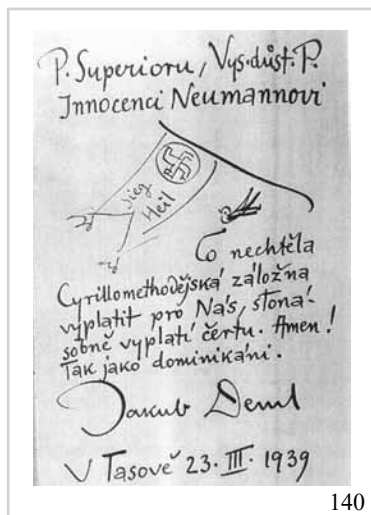 P. Superioru, Vys. důst. P.
Innocenci Neumannovi
Sieg
Heil
Co nechtěla
Cyrillomethodějská záložna
vyplatit pro Nás, stoná-
sobně vyplatí čertu. Amen!
Tak jako dominikáni.
Jakub Deml
V Tasově 23. III. 1939
140